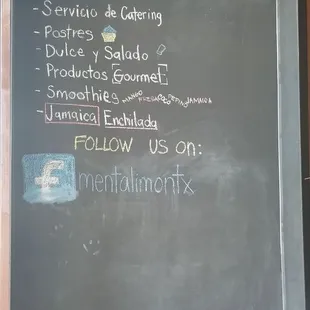 - Servicio de Catering
- Postres
- Dulce y Salado
- Productos Gourmet
- Smoothies MANGO JAMAICA
- Jamaica Enchilada
FOLLOW US on:
f mentalimontx